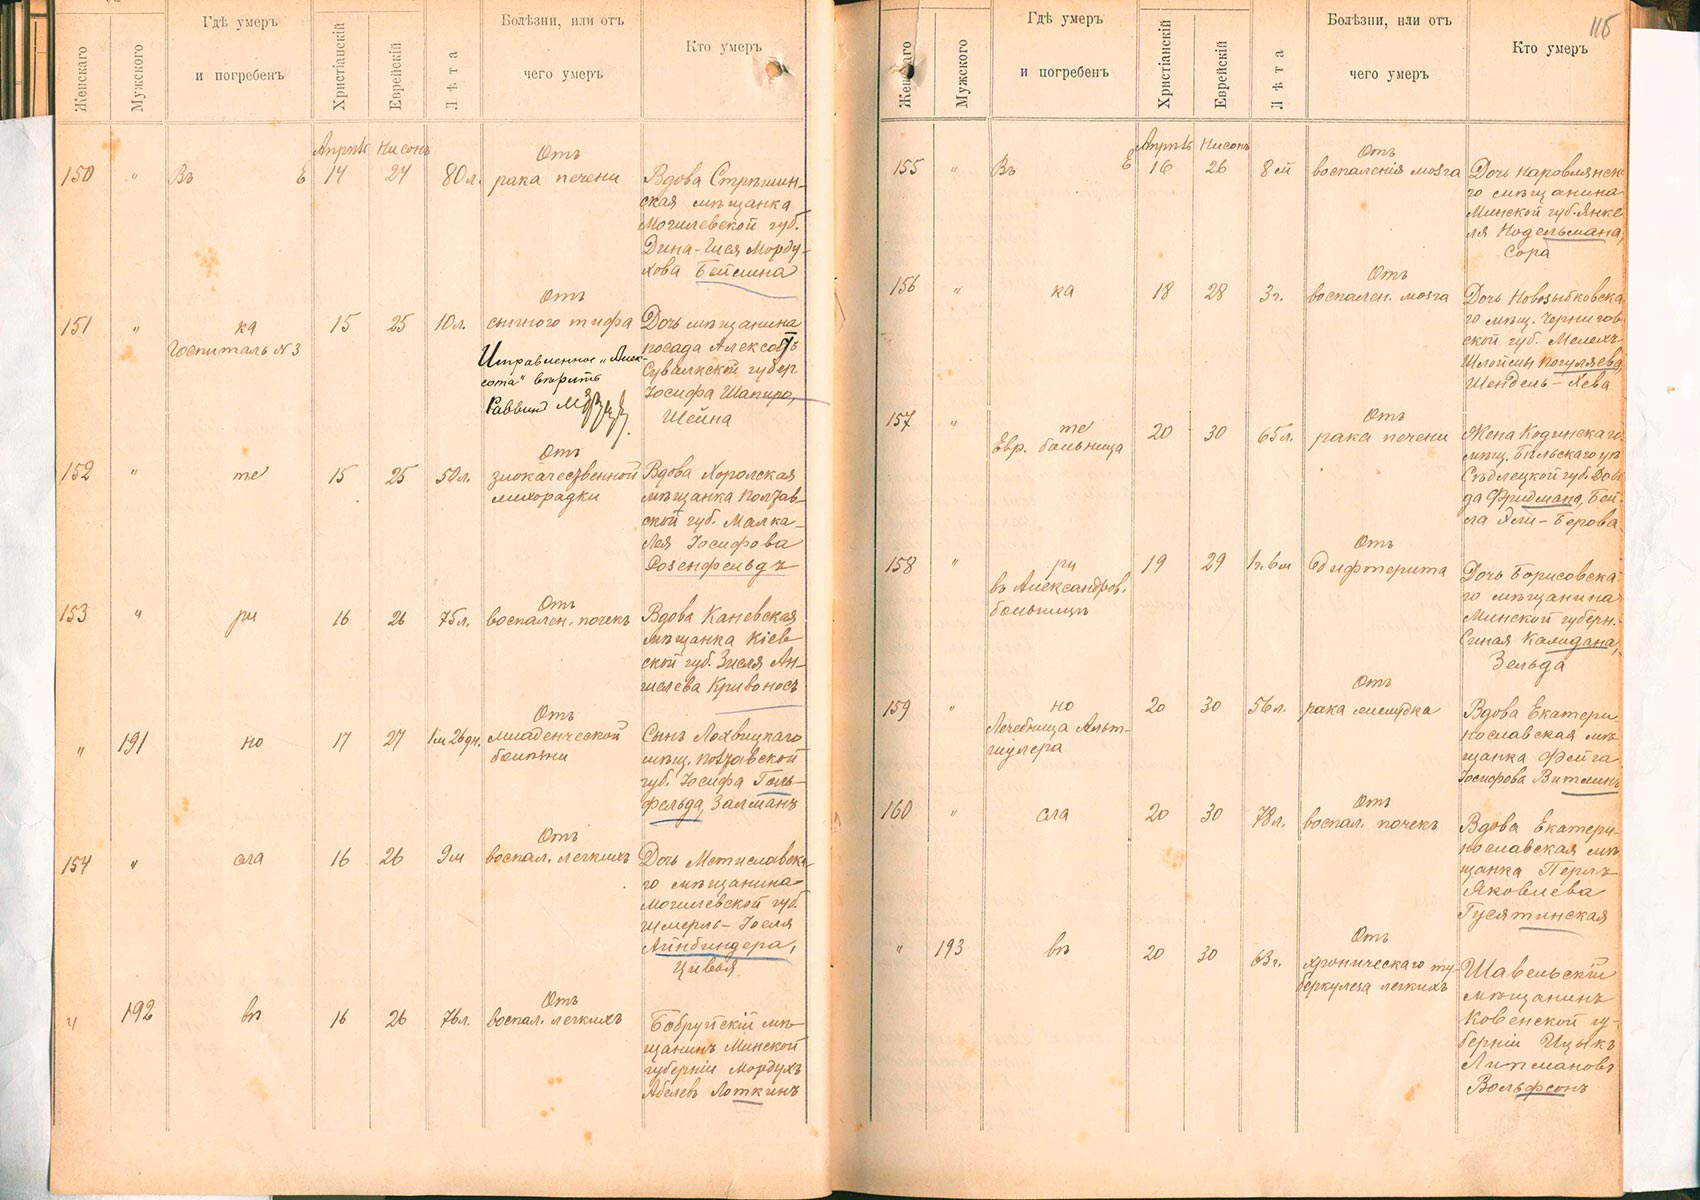 Женскаго
Мужского
Гдѣ умеръ
и погребенъ
Христіанскій
Еврейскій
Лѣта
Болѣзни, или отъ
чего умеръ
Кто умеръ
Апрѣль Нисонъ
150 " Въ Е 14 24 80 л.
Отъ
рака печени
Вдова Стрѣшин-
ская мѣщанка
Могилевской губ.
Дина-Шея Морду-
хова Бейлина
151 " ка 15 25 10 л.
Госпиталь N 3
Отъ
сыпного тифа
Исправленное "Алек-
сота" вѣрить
Раввинъ
Дочь мѣщанина
посада Алексотъ
Сувалкской губер.
Іосифа Шапиро,
Шейна
152 " те 15 25 50 л.
Отъ
злокачественной
лихорадки
Вдова Хорольская
мѣщанка Полтав-
ской губ. Малка-
Лея Іосифова
Розенфельдъ
153 " ри 16 26 75 л.
Отъ
воспален. почекъ
Вдова Каневская
мѣщанка Кіев-
ской губ. Зисля Ан-
шелева Кривоносъ
" 191 но 17 27 1 м 26 дн.
Отъ
младенческой
болѣзни
Сынъ Лохвицкаго
мѣщ. Полтавской
губ. Іосифа Голь-
фельда, Залманъ
154 " сла 16 26 9 м
Отъ
воспал. легкихъ
Дочь Мстиславска-
го мѣщанина
Могилевской губ.
Шмерль-Іоселя
Айнбиндера,
Цивья
" 192 вѣ 16 26 76 л.
Отъ
воспал. легкихъ
Бобруйскій мѣ-
щанинъ Минской
губерніи Мордухъ
Абелевъ Лоткинъ
115
Женскаго
Мужского
Гдѣ умеръ
и погребенъ
Христіанскій
Еврейскій
Лѣта
Болѣзни, или отъ
чего умеръ
Кто умеръ
Апрѣль Нисонъ
155 " Въ Е 16 26 8 м
Отъ
воспаленія мозга
Дочь Наровлянск-
го мѣщанина
Минской губ. Янке-
ля Нодельмана,
Сора
156 " ка 18 28 3 г.
Отъ
воспален. мозга
Дочь Новозыбковска-
го мѣщ. Чернигов-
ской губ. Мелехъ-
Шлоймы Погуляева,
Шендель-Хева
157 " те 20 30 65 л.
Евр. больница
Отъ
рака печени
Жена Кодинскаго
мѣщ. Бѣльскаго уѣ.
Сѣдлецкой губ. Довы-
да Фридмана, Бей-
ла Эли-Берова
158 " ри 19 29 1 г. 6 м
въ Александров.
больницѣ
Отъ
дифтерита
Дочь Борисовска-
го мѣщанина
Минской губерн.
Симая Калидана,
Зельда
159 " но 20 30 56 л.
Лечебница Альт-
шулера
Отъ
рака желудка
Вдова Екатери-
нославская мѣ-
щанка Фейга
Іосифова Витлинъ
160 " сла 20 30 78 л.
Отъ
воспал. почекъ
Вдова Екатери-
нославская мѣ-
щанка Перлъ
Яковлева
Гусятинская
" 193 вѣ 20 30 63 г.
Отъ
хроническаго ту-
беркулеза легкихъ
Шавельскій
мѣщанинъ
Ковенской гу-
берніи Ицыкъ
Липмановъ
Вольфсонъ